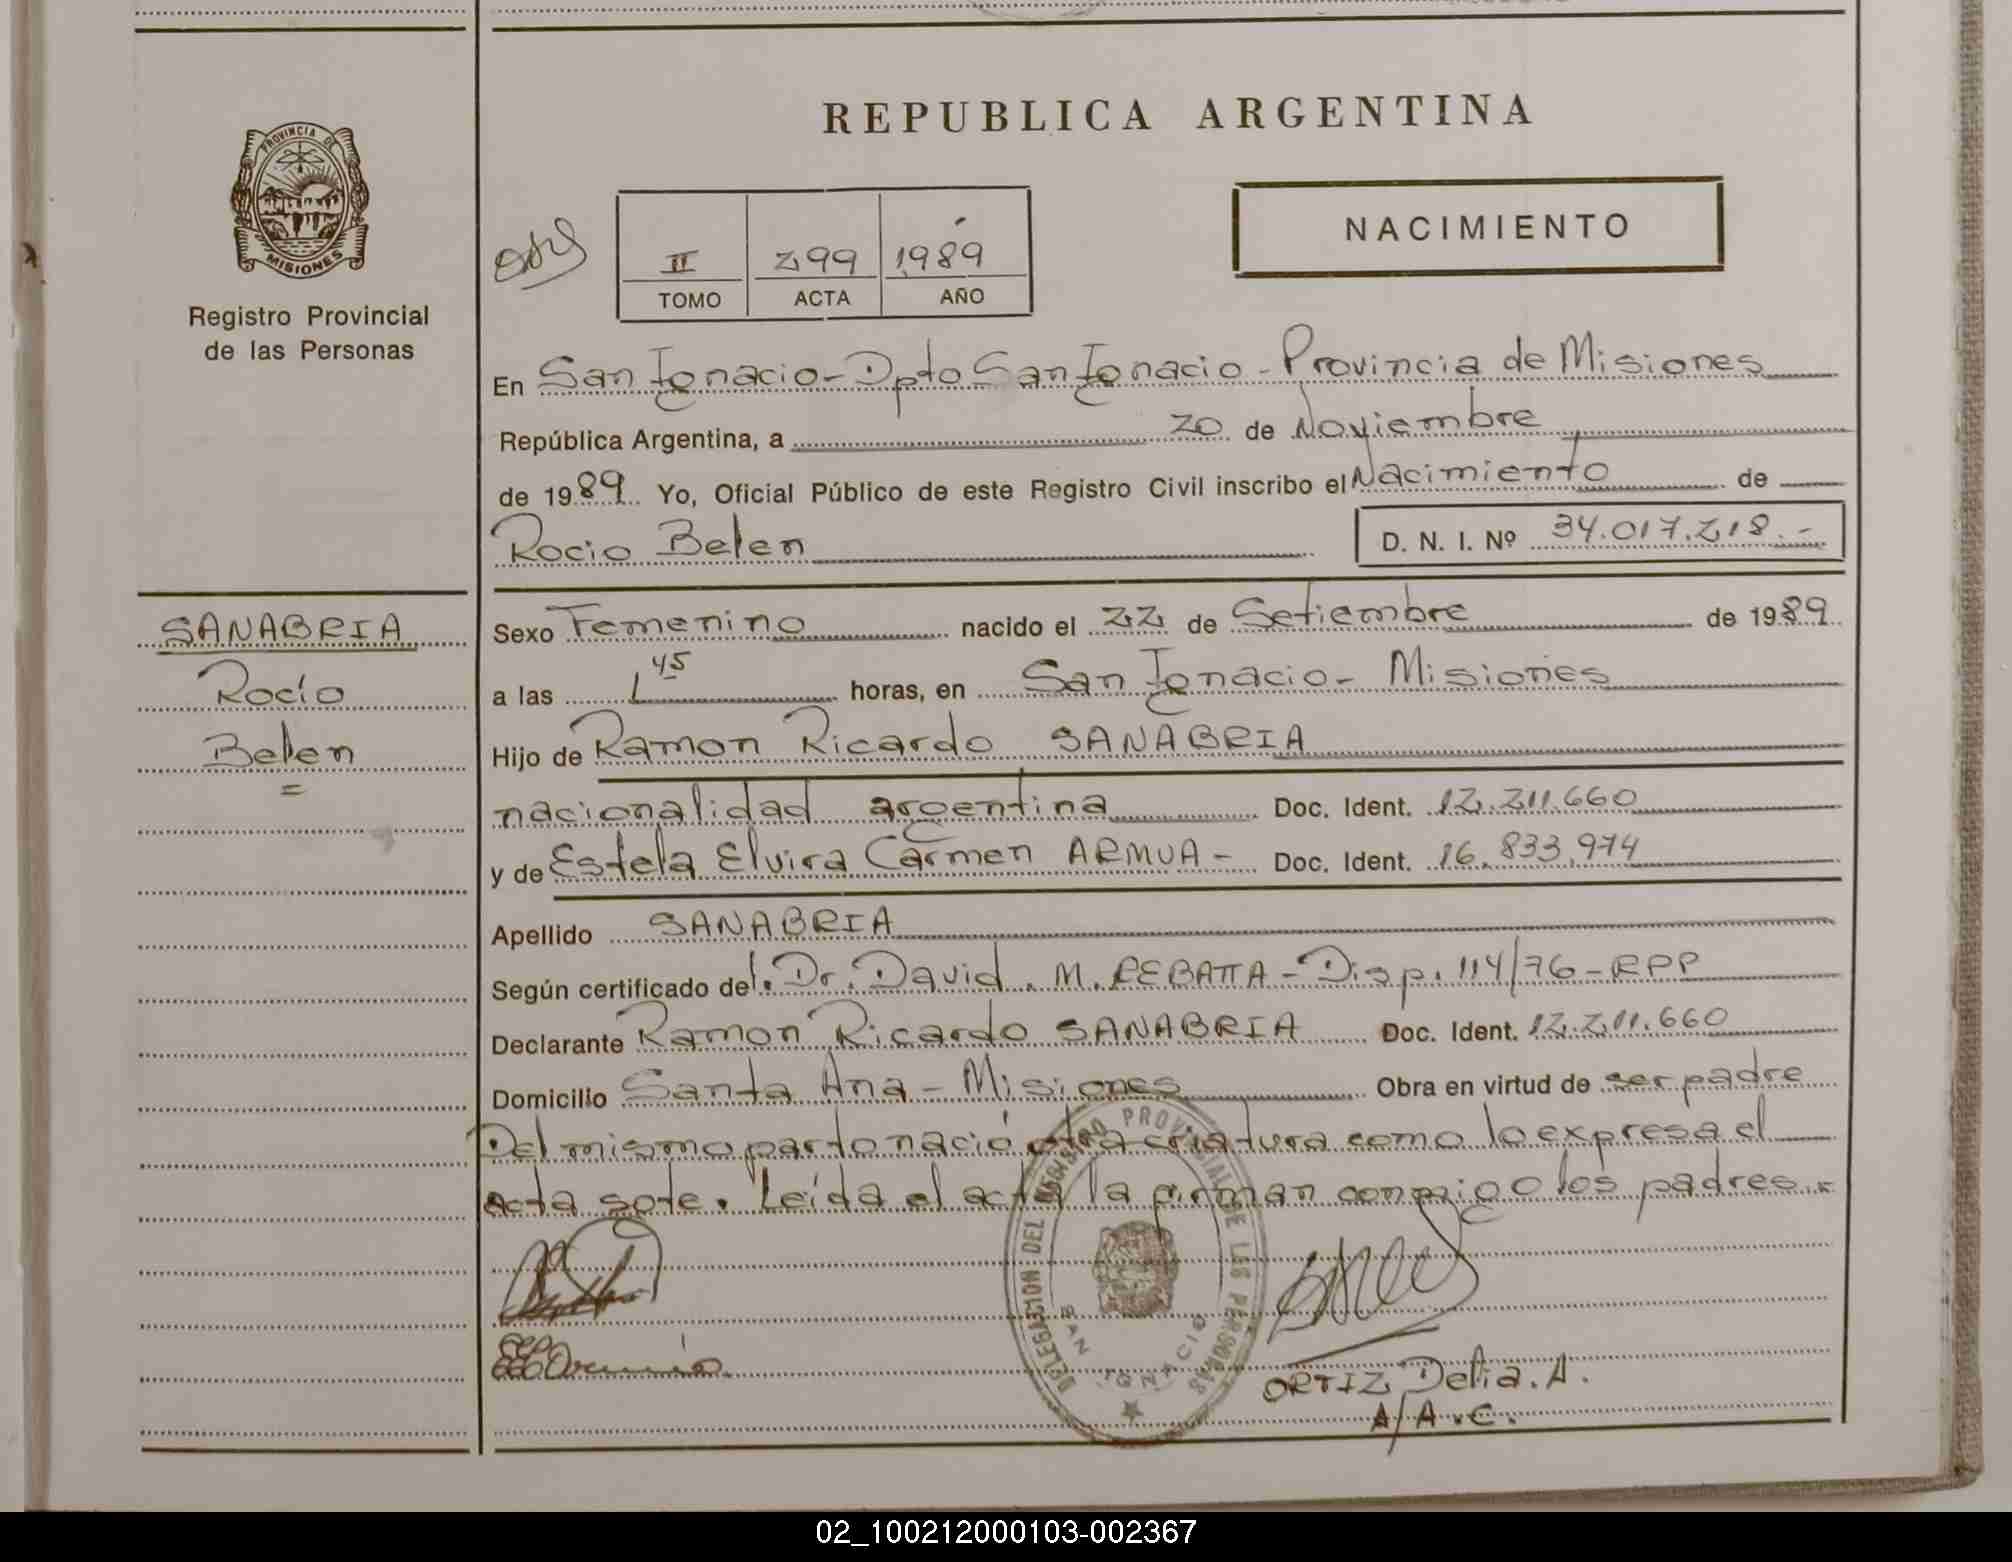 REPUBLICA ARGENTINA
PROVINCIA DE
MISIONES
Registro Provincial
de las Personas
II 299 1989
TOMO ACTA AÑO
NACIMIENTO
En San Ignacio - Dpto San Ignacio - Provincia de Misiones
República Argentina, a 20 de Noviembre
de 1989 Yo, Oficial Público de este Registro Civil inscribo el Nacimiento de
Rocio Belen D. N. I. Nº 34.017.218.-
SANABRIA
Rocío
Belen
Sexo Femenino nacido el 22 de Setiembre de 1989
a las 1 45 horas, en San Ignacio - Misiones
Hijo de Ramon Ricardo SANABRIA
nacionalidad argentina Doc. Ident. 12.211.660
y de Estela Elvira Carmen ARMUA - Doc. Ident. 16.833.974
Apellido SANABRIA
Según certificado del. Dr. David. M. REBATTA - Disp. 114/76 - RPP
Declarante Ramon Ricardo SANABRIA Doc. Ident. 12.211.660
Domicilio Santa Ana - Misiones Obra en virtud de ser padre
Del mismo parto nació otra criatura como lo expresa el
acta sgte. Leída el acta la firman conmigo los padres.-
DELEGACION DEL REGISTRO PROVINCIAL DE LAS PERSONAS
SAN IGNACIO
ORTIZ Delia. A.
A/A.C.
02_100212000103-002367